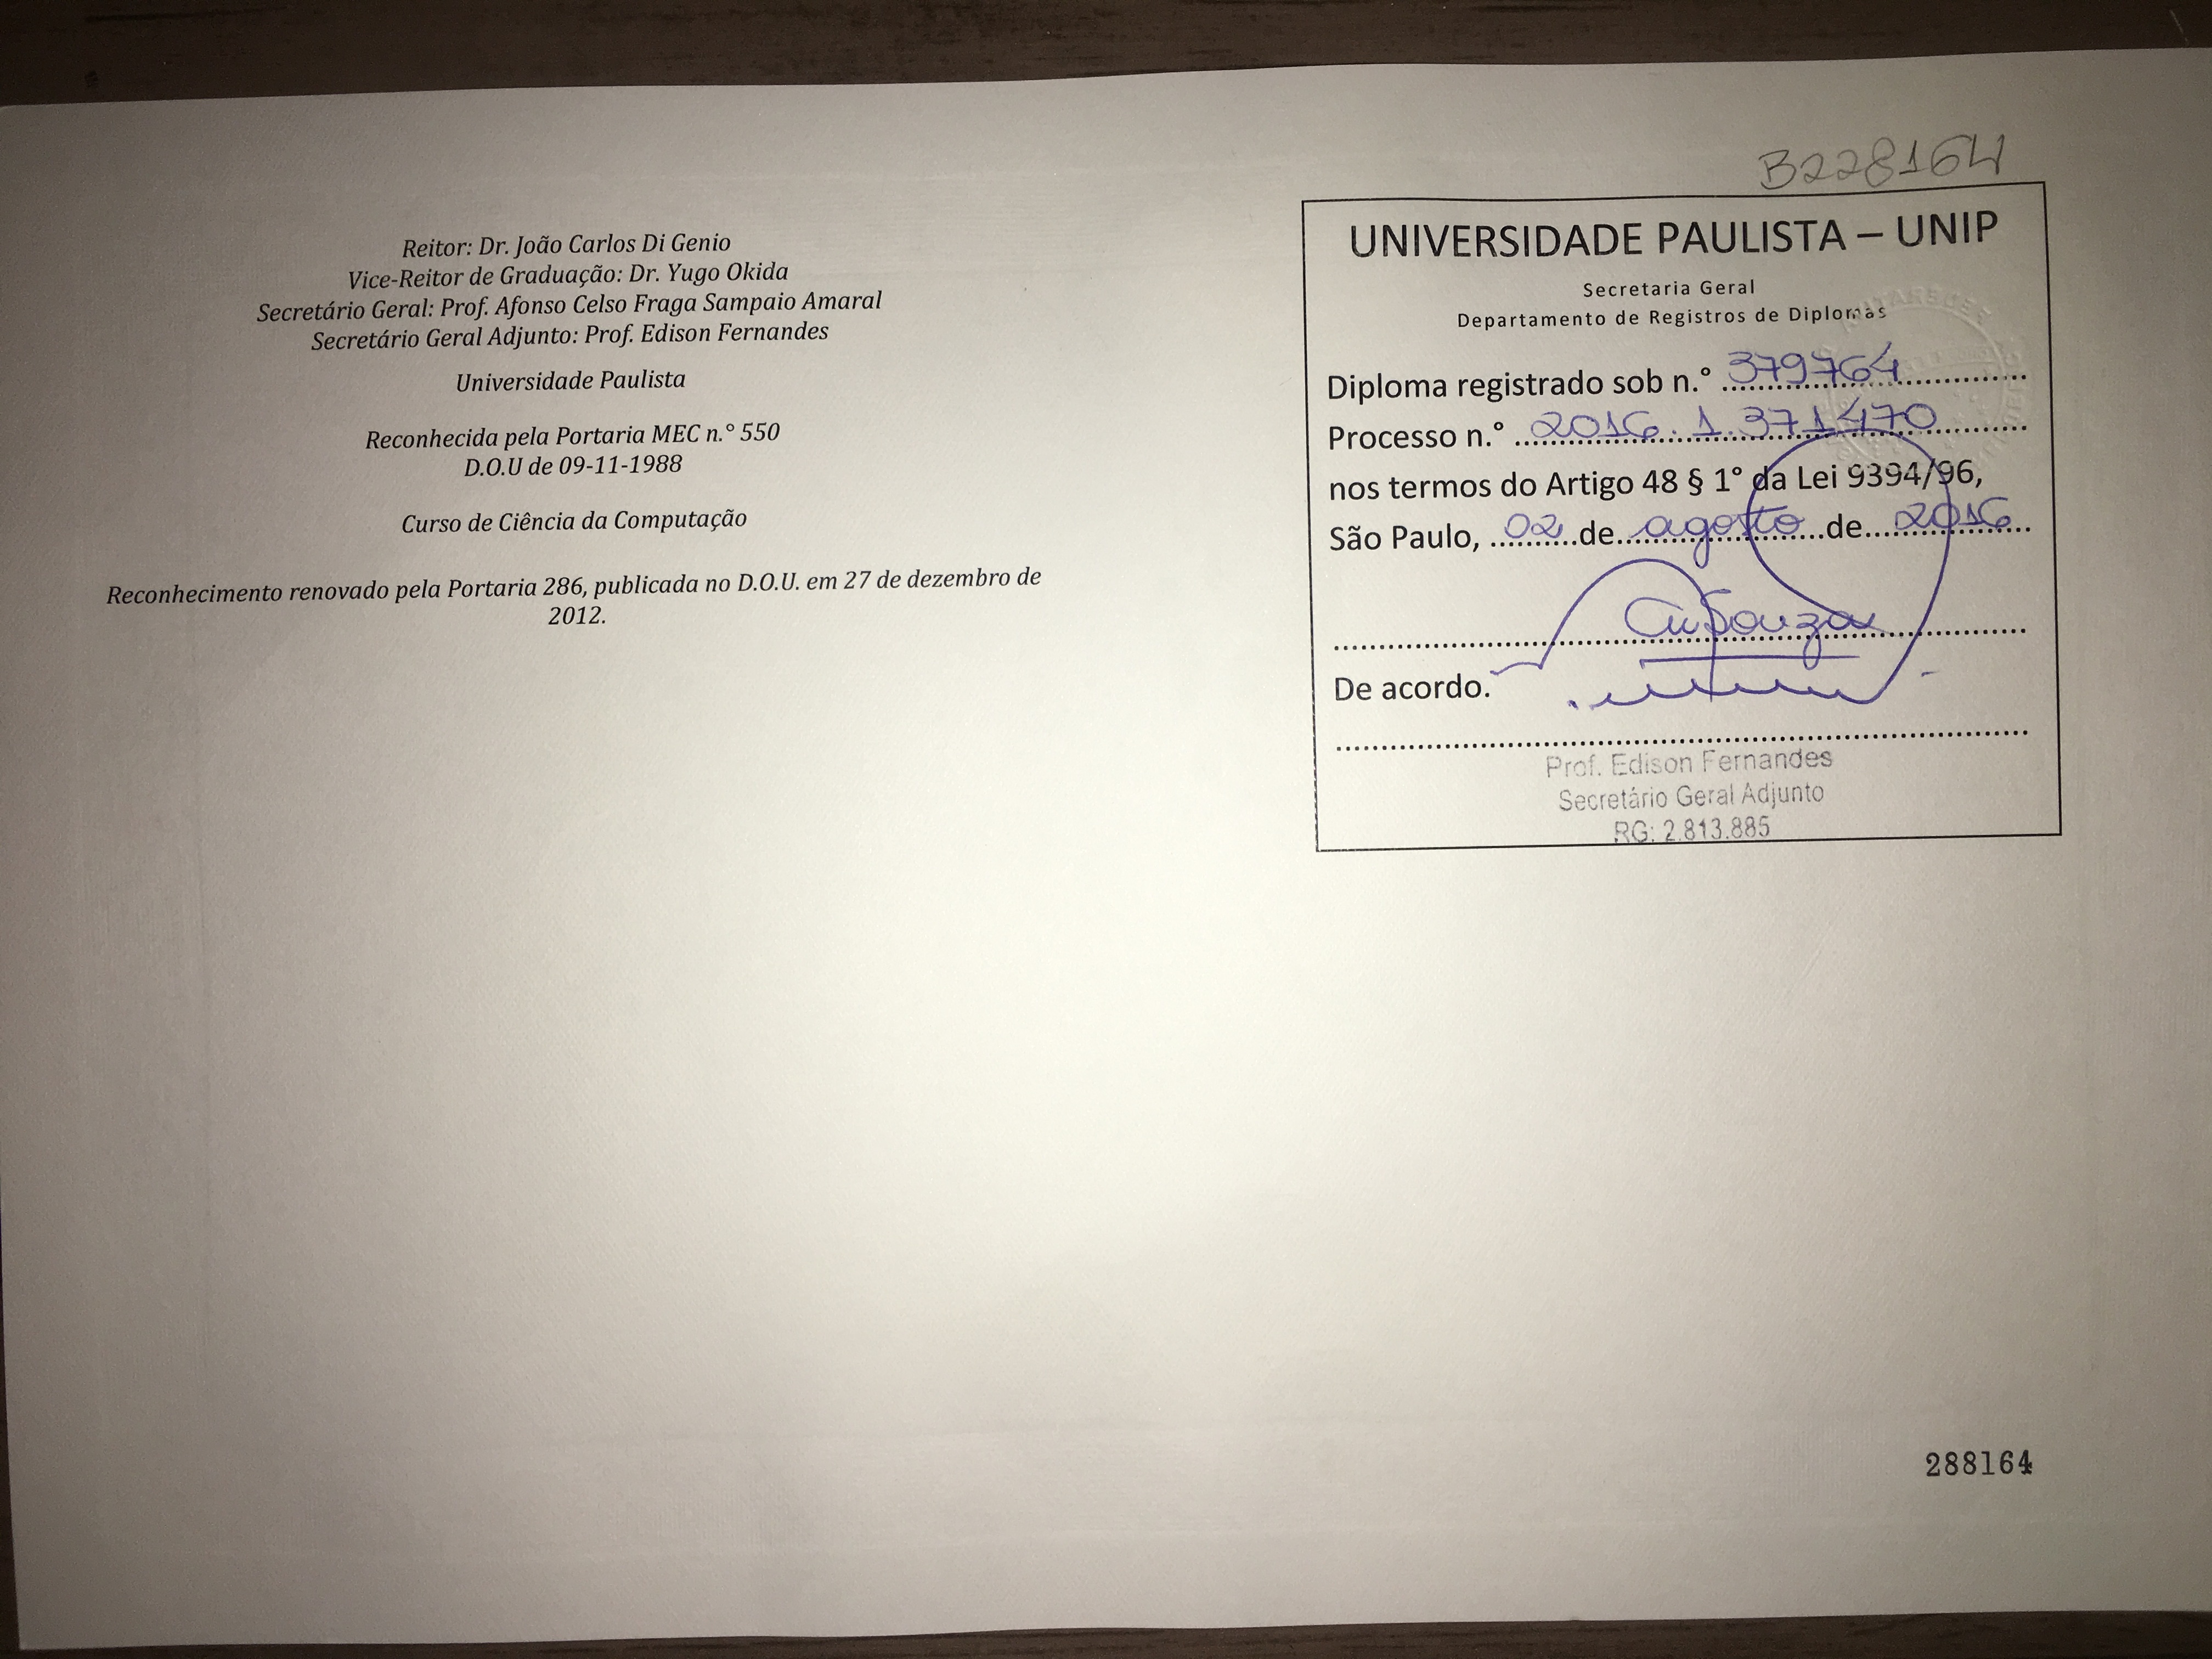 Reitor: Dr. João Carlos Di Genio
Vice-Reitor de Graduação: Dr. Yugo Okida
Secretário Geral: Prof. Afonso Celso Fraga Sampaio Amaral
Secretário Geral Adjunto: Prof. Edison Fernandes
Universidade Paulista
Reconhecida pela Portaria MEC n.° 550
D.O.U de 09-11-1988
Curso de Ciência da Computação
Reconhecimento renovado pela Portaria 286, publicada no D.O.U. em 27 de dezembro de
2012.
B228164
UNIVERSIDADE PAULISTA – UNIP
Secretaria Geral
Departamento de Registros de Diplomas
Diploma registrado sob n.° 379764
Processo n.° 2016.1.371470
nos termos do Artigo 48 § 1° da Lei 9394/96,
São Paulo, 02 de agosto de 2016
Souza
De acordo.
Prof. Edison Fernandes
Secretário Geral Adjunto
RG: 2.813.885
288164